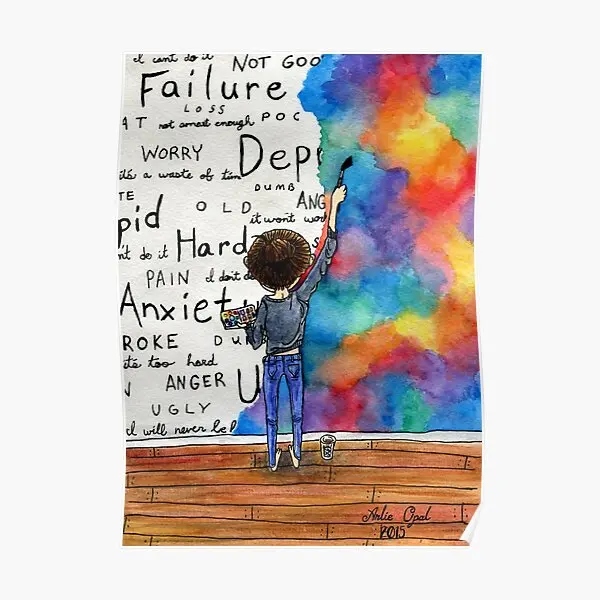 I can't do it
NOT GOO
Failure
LOSS
AT not smart enough POC
WORRY Dep
it's a waste of tim
DUMB
TE
OLD ANG
pid it wont wor
n't do it Hard
PAIN I don't d
Anxiety
ROKE DUM
it's too hard
ANGER U
UGLY
I will never be
Arlie Opal
2015